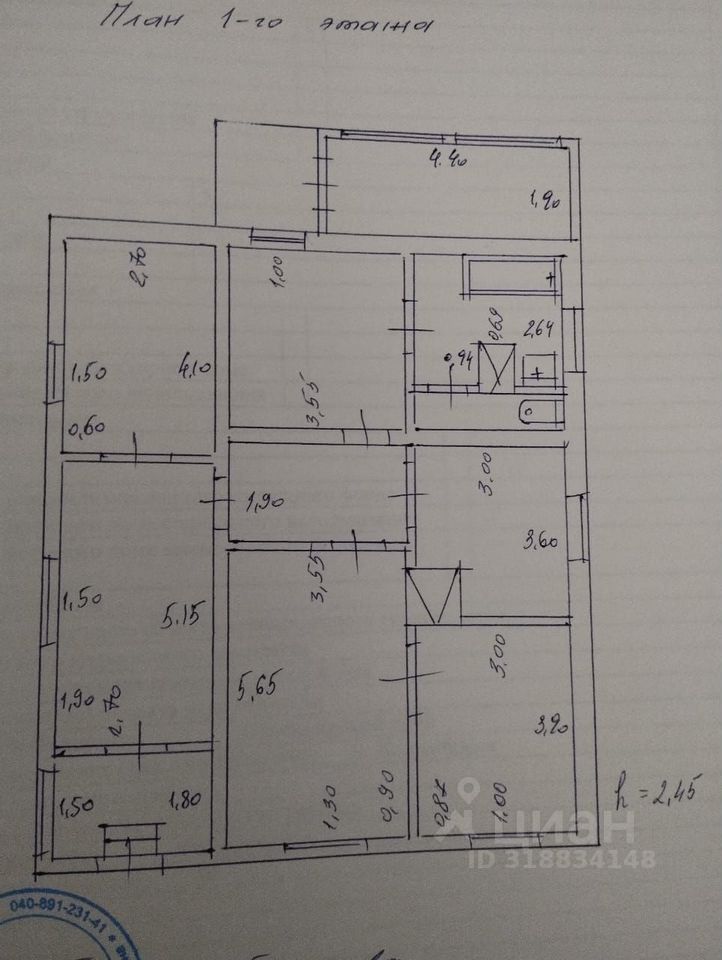 План 1-го этажа
4.40
1,90
2,70
1.00
0,69
2,64
1,50
4.10
0,94
3,55
0,60
3.00
1,90
3,60
1,50
3,55
5.15
3.00
5,65
1,90
2,70
3,90
h = 2,45
1,50
1,80
1,30
0,90
0,87
1,00
циан
ID 318834148
040-891-231-41